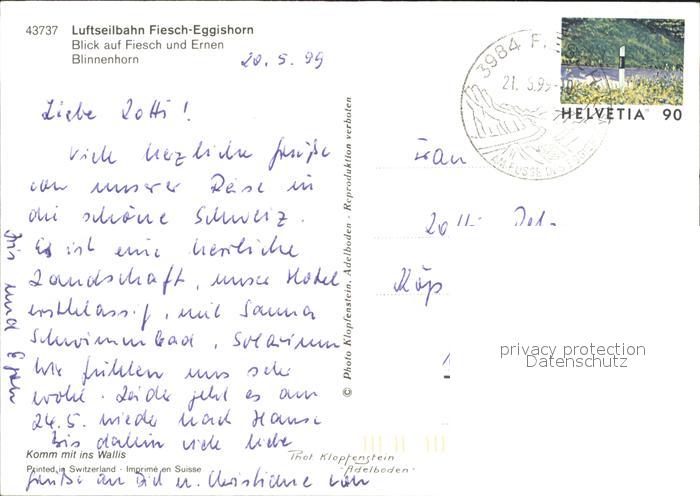 43737 Luftseilbahn Fiesch-Eggishorn
Blick auf Fiesch und Ernen
Blinnenhorn
20.5.99
Liebe Lotti!
Viele herzliche Grüße
von unserer Reise in
die schöne Schweiz.
Es ist eine herrliche
Landschaft, unser Hotel
erstklassig, mit Sauna
Schwimmbad, Solarium
Wir fühlen uns sehr
wohl. Leider geht es am
24.5. wieder nach Hause
Bis dahin viele liebe
Grüße an Dich u. Christiane von
Iris und Egon
Komm mit ins Wallis
Printed in Switzerland - Imprimé en Suisse
© Photo Klopfenstein, Adelboden - Reproduktion verboten
Phot. Klopfenstein
Adelboden
3984 F
21.5.99
AM FUSSE DES
HELVETIA 90
Frau
Lotti
Köp
privacy protection
Datenschutz